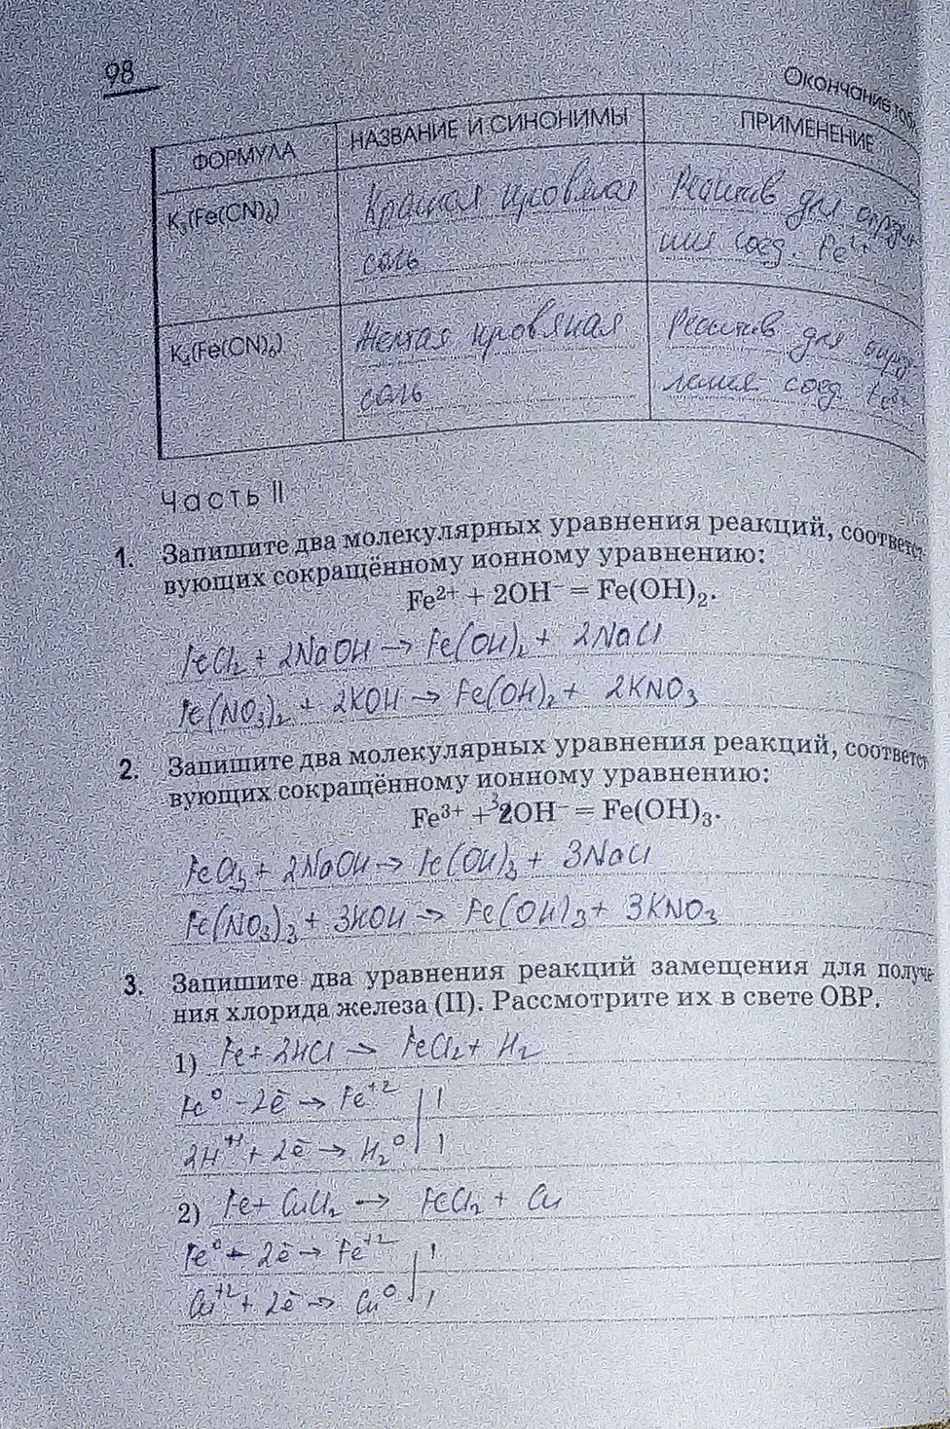 98
Окончание табл
ФОРМУЛА НАЗВАНИЕ И СИНОНИМЫ ПРИМЕНЕНИЕ
K₃(Fe(CN)₆) Красная кровяная Реактив для опреде
соль ния соед. Fe²⁺
K₄(Fe(CN)₆) Желтая кровяная Реактив для
соль ления соед. Fe³⁺
Часть II
1. Запишите два молекулярных уравнения реакций, соответст-
вующих сокращённому ионному уравнению:
Fe²⁺ + 2OH⁻ = Fe(OH)₂.
FeCl₂ + 2NaOH → Fe(OH)₂ + 2NaCl
Fe(NO₃)₂ + 2KOH → Fe(OH)₂ + 2KNO₃
2. Запишите два молекулярных уравнения реакций, соответст
вующих сокращённому ионному уравнению:
Fe³⁺ + ³2OH⁻ = Fe(OH)₃.
FeCl₃ + 2NaOH → Fe(OH)₃ + 3NaCl
Fe(NO₃)₃ + 3KOH → Fe(OH)₃ + 3KNO₃
3. Запишите два уравнения реакций замещения для получе-
ния хлорида железа (II). Рассмотрите их в свете ОВР.
1) Fe + 2HCl → FeCl₂ + H₂
Fe⁰ - 2ē → Fe⁺² | 1
2H⁺¹ + 2ē → H₂⁰ | 1
2) Fe + CuCl₂ → FeCl₂ + Cu
Fe⁰ - 2ē → Fe⁺² | 1
Cu⁺² + 2ē → Cu⁰ | 1